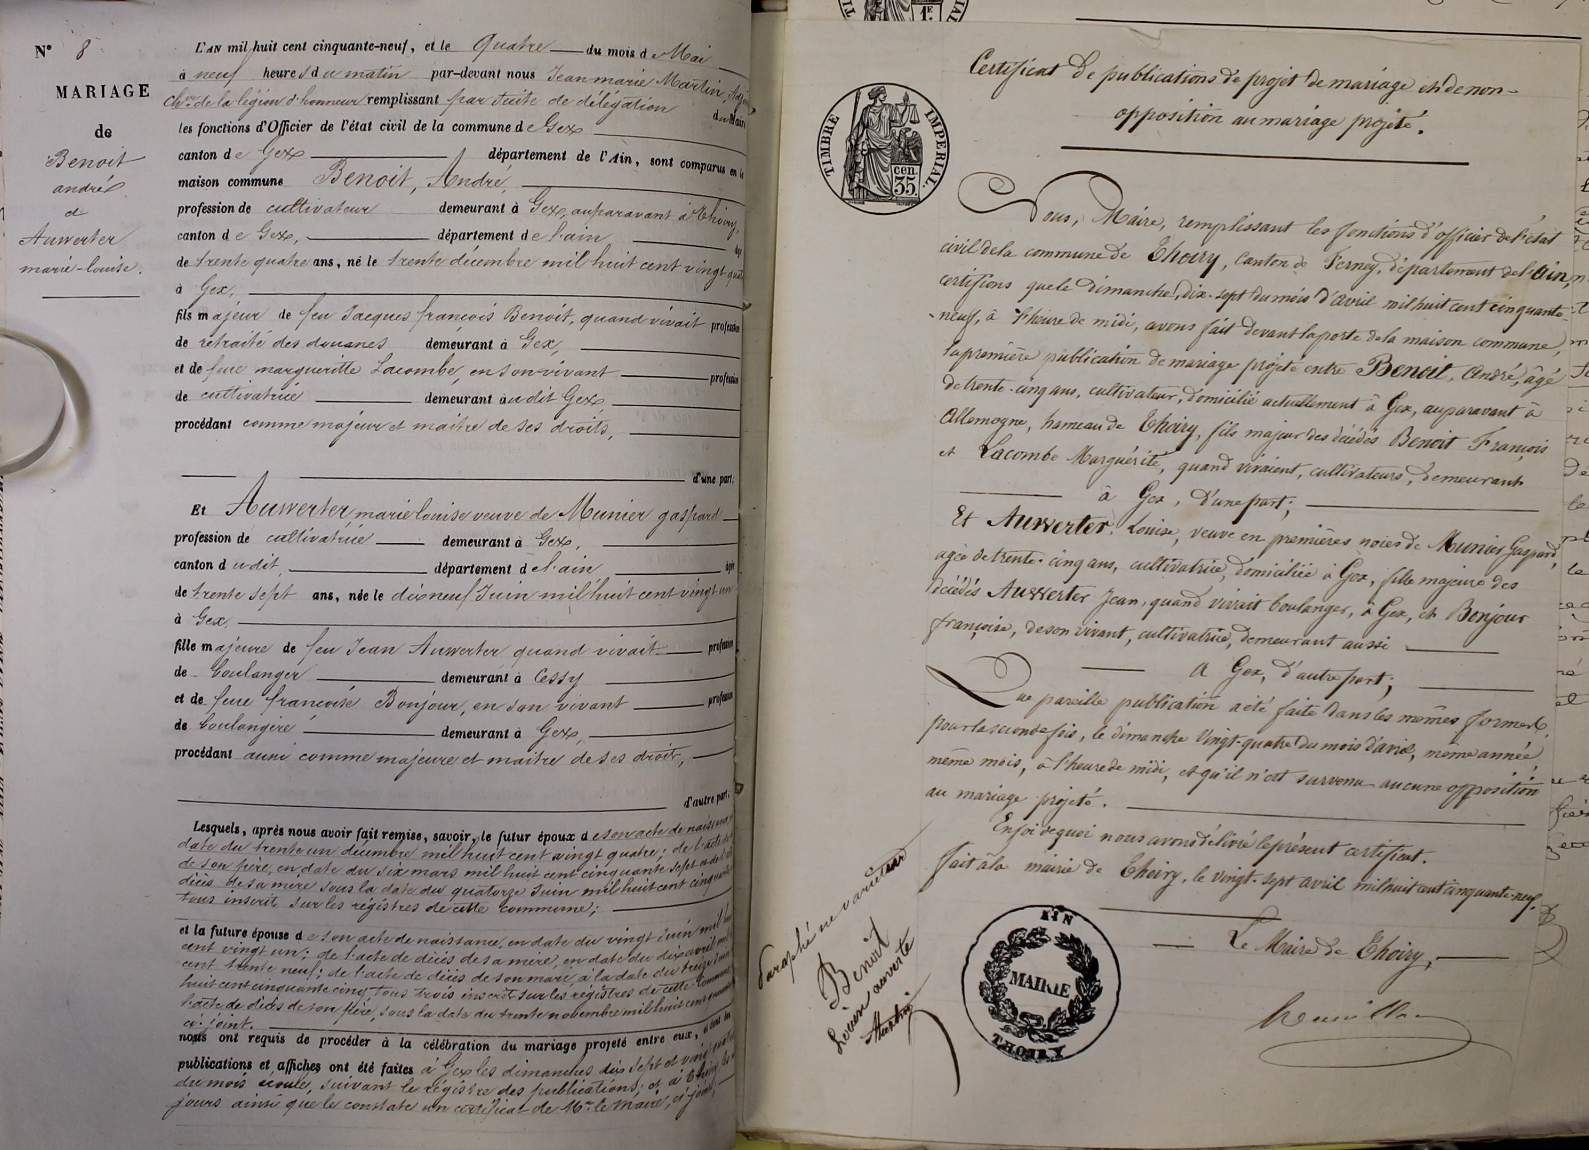 N° 8
MARIAGE
de
Benoit
andré
et
Auwerter
marie-louise.
L'AN mil huit cent cinquante-neuf, et le Quatre du mois de Mai
à neuf heures du matin par-devant nous Jean marie Martin, Adj
Cher de la légion d'honneur remplissant par suite de délégation du Maire
les fonctions d'Officier de l'état civil de la commune de Gex
canton de Gex département de l'Ain, sont comparus en la
maison commune Benoit, André,
profession de cultivateur demeurant à Gex, auparavant à Thoiry,
canton de Gex, département de l'ain âgé
de trente quatre ans, né le trente décembre mil huit cent vingt quatre
à Gex,
fils majeur de feu Jacques françois Benoit, quand vivait profession
de retraité des douanes demeurant à Gex,
et de feue margueritte Lacombe, en son vivant profession
de cultivatrice demeurant audit Gex,
procédant comme majeur et maitre de ses droits,
d'une part;
Et Auwerter marie louise veuve de Munier gaspard
profession de cultivatrice demeurant à Gex,
canton dudit, département de l'ain âgée
de trente sept ans, née le dixneuf Juin mil huit cent vingt un
à Gex,
fille majeure de feu Jean Auwerter quand vivait profession
de boulanger demeurant à Cessy
et de feue francoise Bonjour, en son vivant profession
de boulangère demeurant à Gex,
procédant aussi comme majeure et maitre de ses droits,
d'autre part.
Lesquels, après nous avoir fait remise, savoir, le futur époux de son acte de naissance
date du trente un décembre mil huit cent vingt quatre; de l'acte de
de son père, en date du six mars mil huit cent cinquante sept et de
décès de sa mère sous la date du quatorze Juin mil huit cent cinquante
tous inscrit sur les régistres de cette commune;
et la future épouse de son acte de naissance, en date du vingt Juin mil huit
cent vingt un; de l'acte de décès de sa mère, en date du dix avril mil
cent trente neuf; de l'acte de décès de son mari, à la date du treize
huit cent cinquante cinq tous trois inscrit sur les régistres de cette commune
l'acte de décès de son père, sous la date du trente novembre mil huit cent
ci-joint.
nous ont requis de procéder à la célébration du mariage projeté entre eux, et dont les
publications et affiches ont été faites à Gex les dimanches dix sept et vingt quatre
du mois écoulé, suivant le régistre des publications; et à Thoiry les
jours ainsi que le constate un certificat de Mr. le Maire, ci joint,
1F.
TIMBRE IMPERIAL.
35 cen.
Certificat de publications de projet de mariage et de non-
opposition au mariage projeté.
Nous, Maire, remplissant les fonctions d'officier de l'état
civil de la commune de Thoiry, Canton de Ferney, département de l'Ain,
certifions que le dimanche, dix-sept du mois d'avril mil huit cent cinquante
-neuf, à l'heure de midi, avons fait devant la porte de la maison commune,
la première publication de mariage projeté entre Benoit, André, âgé
de trente-cinq ans, cultivateur, domicilié actuellement à Gex, auparavant à
Allemogne, hameau de Thoiry, fils majeur des décédés Benoit François
et Lacombe Marguérite, quand vivaient, cultivateurs, demeurant
à Gex, d'une part;
Et Auwerter, Louise, veuve en premières noces de Munier Gaspard,
agée de trente-cinq ans, cultivatrice, domiciliée à Gex, fille majeure des
décédés Auwerter Jean, quand vivait boulanger, à Gex, et Bonjour
françoise, de son vivant, cultivatrice, demeurant aussi
A Gex, d'autre part;
Que pareille publication a été faite dans les mêmes formes,
pour la seconde fois, le dimanche vingt-quatre du mois d'avril, même année,
même mois, à l'heure de midi, et qu'il n'est survenu aucune opposition
au mariage projeté.
En foi de quoi nous avons délivré le présent certificat.
fait à la mairie de Thoiry, le vingt-sept avril mil huit cent cinquante-neuf.
Le Maire de Thoiry,
AIN
MAIRIE
THOIRY
Paraphé ne varietur
Benoit
Louise auverte
Martin